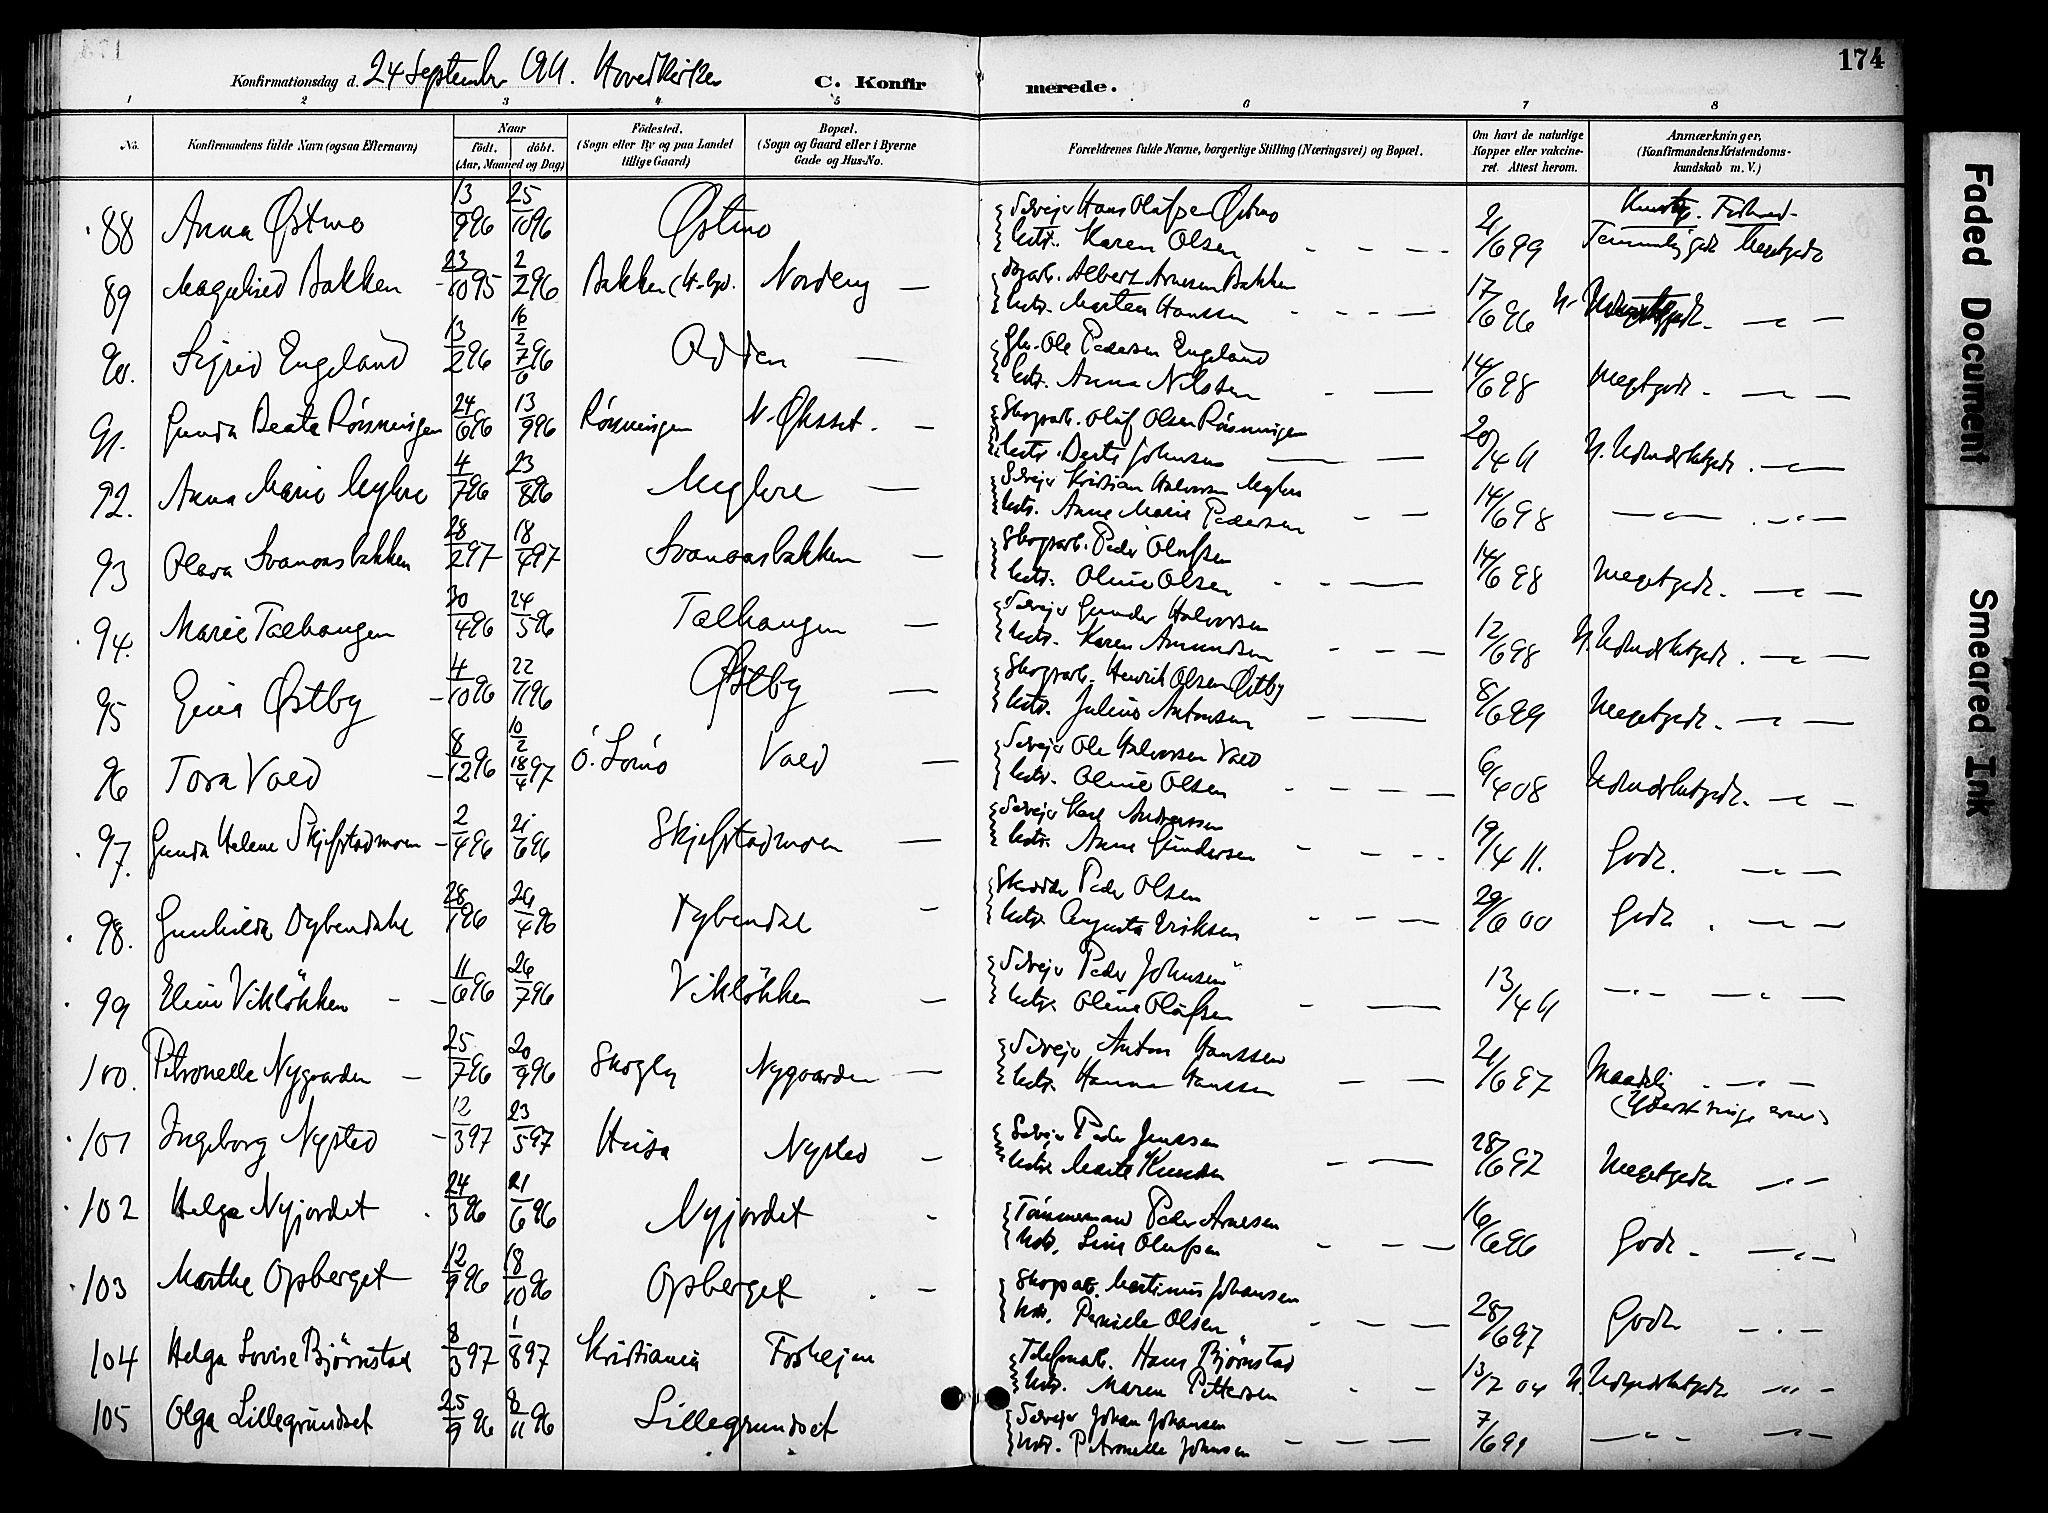 174
Konfirmationsdag d. 24 September 1911. Hovedkirken C. Konfirmerede.
1 2 3 4 5 6 7 8
No. Konfirmandens fulde Navn (ogsaa Efternavn) Naar født. døbt. (Aar, Maaned og Dag) Fødested. (Sogn eller By og paa Landet tillige Gaard) Bopæl. (Sogn og Gaard eller i Byerne Gade og Hus-No. Forældrenes fulde Navne, borgerlige Stilling (Næringsvei) og Bopæl. Om havt de naturlige Kopper eller vakcineret. Attest herom. Anmærkninger. (Konfirmandens Kristendomskundskab m. V.)
88 Anna Østmo 13/9 96 25/10 96 Østmo Selvejer Hans Olufsen Østmo
Hstr. Karen Olsen 2/6 99 Temmelig godt Meget godt
89 Magnhild Bakken 23/10 95 2/2 96 Bakken Nordeng Albert Arnesen Bakken
Hstr. Marten Hanssen 17/6 96
90. Sigrid Engeland 13/2 96 Odden Ole Pedersen Engeland
Hstr. Anna Nilsen 14/6 98 Meget godt
91. Gunda Beata Rønningen 24/6 96 13/9 96 Rønningen N. Øksset Skogsarb. Oluf Olsen Rønningen
Hstr. Berte Johnsen 20/4 11 N. Udmerket godt
92. Anna Marie Myhre 4/7 96 23/8 96 Myhre Selvejer Kristian Halvorsen Myhre
Hstr. Anne Marie Pedersen 14/6 98
93 Olava Svanaasbakken 28/2 97 18/4 97 Svanaasbakken Skogsarb. Peder Olufsen
Hstr. Oline Olsen 14/6 98 Meget godt
94. Marie Tælhaugen 30/4 96 24/5 96 Tælhaugen Selvejer Gunder Halvorsen
Hstr. Karen Amundsen 12/6 98 N. Udmerket godt
95 Gina Østby 4/10 96 22/11 96 Østby Skogsarb. Henrik Olsen Østby
Hstr. Juline Antonsen 8/6 99 Meget godt
96 Tora Vold 8/12 96 18/4 97 Vold Selvejer Ole Halvorsen Vold
Hstr. Oline Olsen 6/4 08 Udmerket godt
97. Gunda Helene Skjefstadmoen 2/4 96 21/6 96 Skjefstadmoen Selvejer Karl Andreassen
Hstr. Anne Gundersen 19/4 11. Godt.
98. Gunhilda Dybendahl 28/1 96 26/4 96 Dybendal Skredder Peder Olsen
Hstr. Augusta Eriksen 29/6 00 Godt
99 Eline Vikløkken 11/6 96 26/7 96 Vikløkken Selvejer Peder Johnsen
Hstr. Oline Olufsen 13/4 11
100. Petronelle Nygaarden 25/7 96 20/9 96 Skogly Nygaarden Selvejer Anton Hanssen
Hstr. Hanna Hanssen 21/6 97 Maadelig
101 Ingeborg Nysted 12/3 97 23/5 97 Heisa Nysted Selvejer Peder Jenssen
Hstr. Marte Knudsen 28/6 97 Meget godt
102 Helga Nyjordet 24/3 96 21/6 96 Nyjordet Tømmermand Peder Arnesen
Hstr. Line Olufsen 16/6 96 Godt
103 Marthe Opsberget 12/9 96 18/10 96 Opsberget Skogsarb. Martinius Johansen
Hstr. Pernille Olsen 28/6 97 Godt
104 Helga Lovise Bjørnstad 8/3 97 1/8 97 Kristiania Telefonarb. Hans Bjørnstad
Hstr. Maren Pettersen 13/7 04 N. Udmerket godt
105 Olga Lillegrundset 25/9 96 8/11 96 Lillegrundset Selvejer Johan Johansen
Hstr. Petronelle Johnsen 7/6 99
Faded Document
Smeared Ink